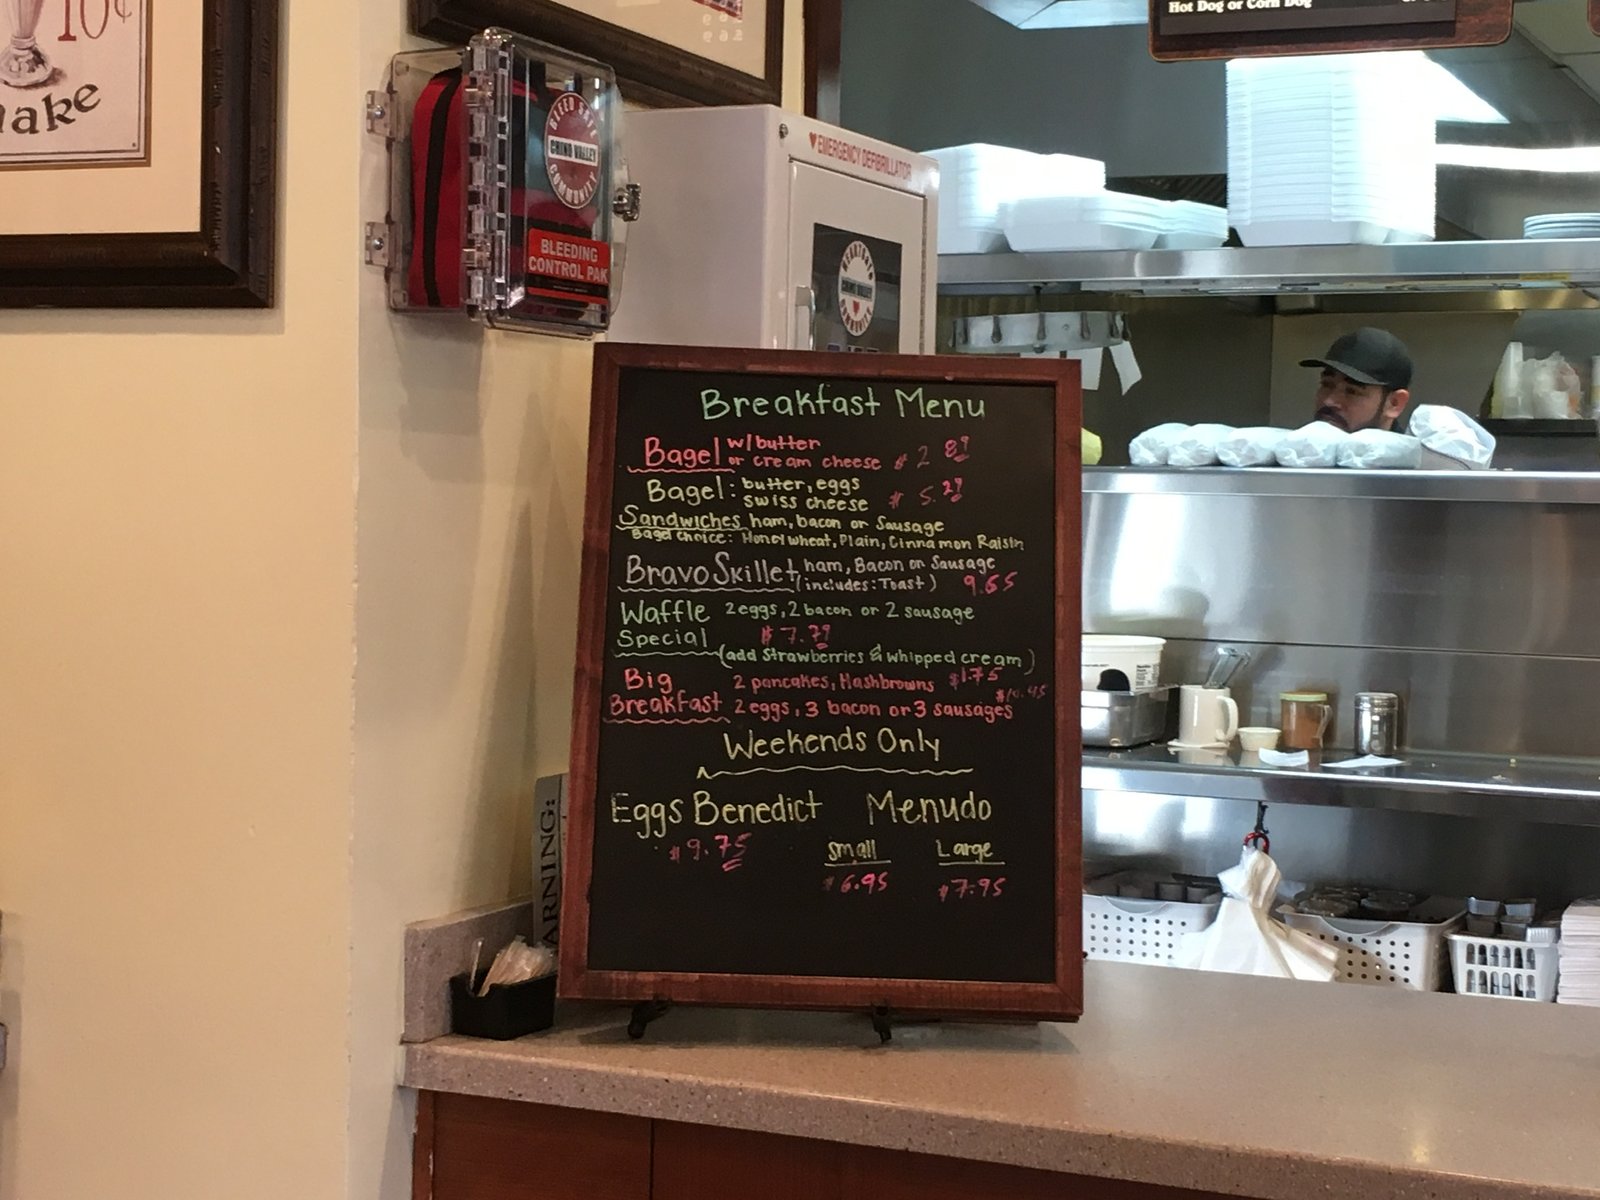 10¢
ake
BLEED SAFE
CHINO VALLEY
COMMUNITY
BLEEDING
CONTROL PAK
EMERGENCY DEFIBRILLATOR
HEARTSAFE
CHINO VALLEY
COMMUNITY
Hot Dog or Corn Dog
Breakfast Menu
Bagel w/butter
or cream cheese $2.89
Bagel: butter, eggs
swiss cheese $5.29
Sandwiches ham, bacon or Sausage
Bagel choice: Honey wheat, Plain, Cinnamon Raisin
Bravo Skillet ham, Bacon or Sausage
(includes: Toast) 9.65
Waffle 2 eggs, 2 bacon or 2 sausage
Special $7.79
(add Strawberries & whipped cream)
$1.75
Big 2 pancakes, Hashbrowns
Breakfast 2 eggs, 3 bacon or 3 sausages
Weekends Only
Eggs Benedict Menudo
$9.75 small Large
$6.95 $7.95
ARNING: